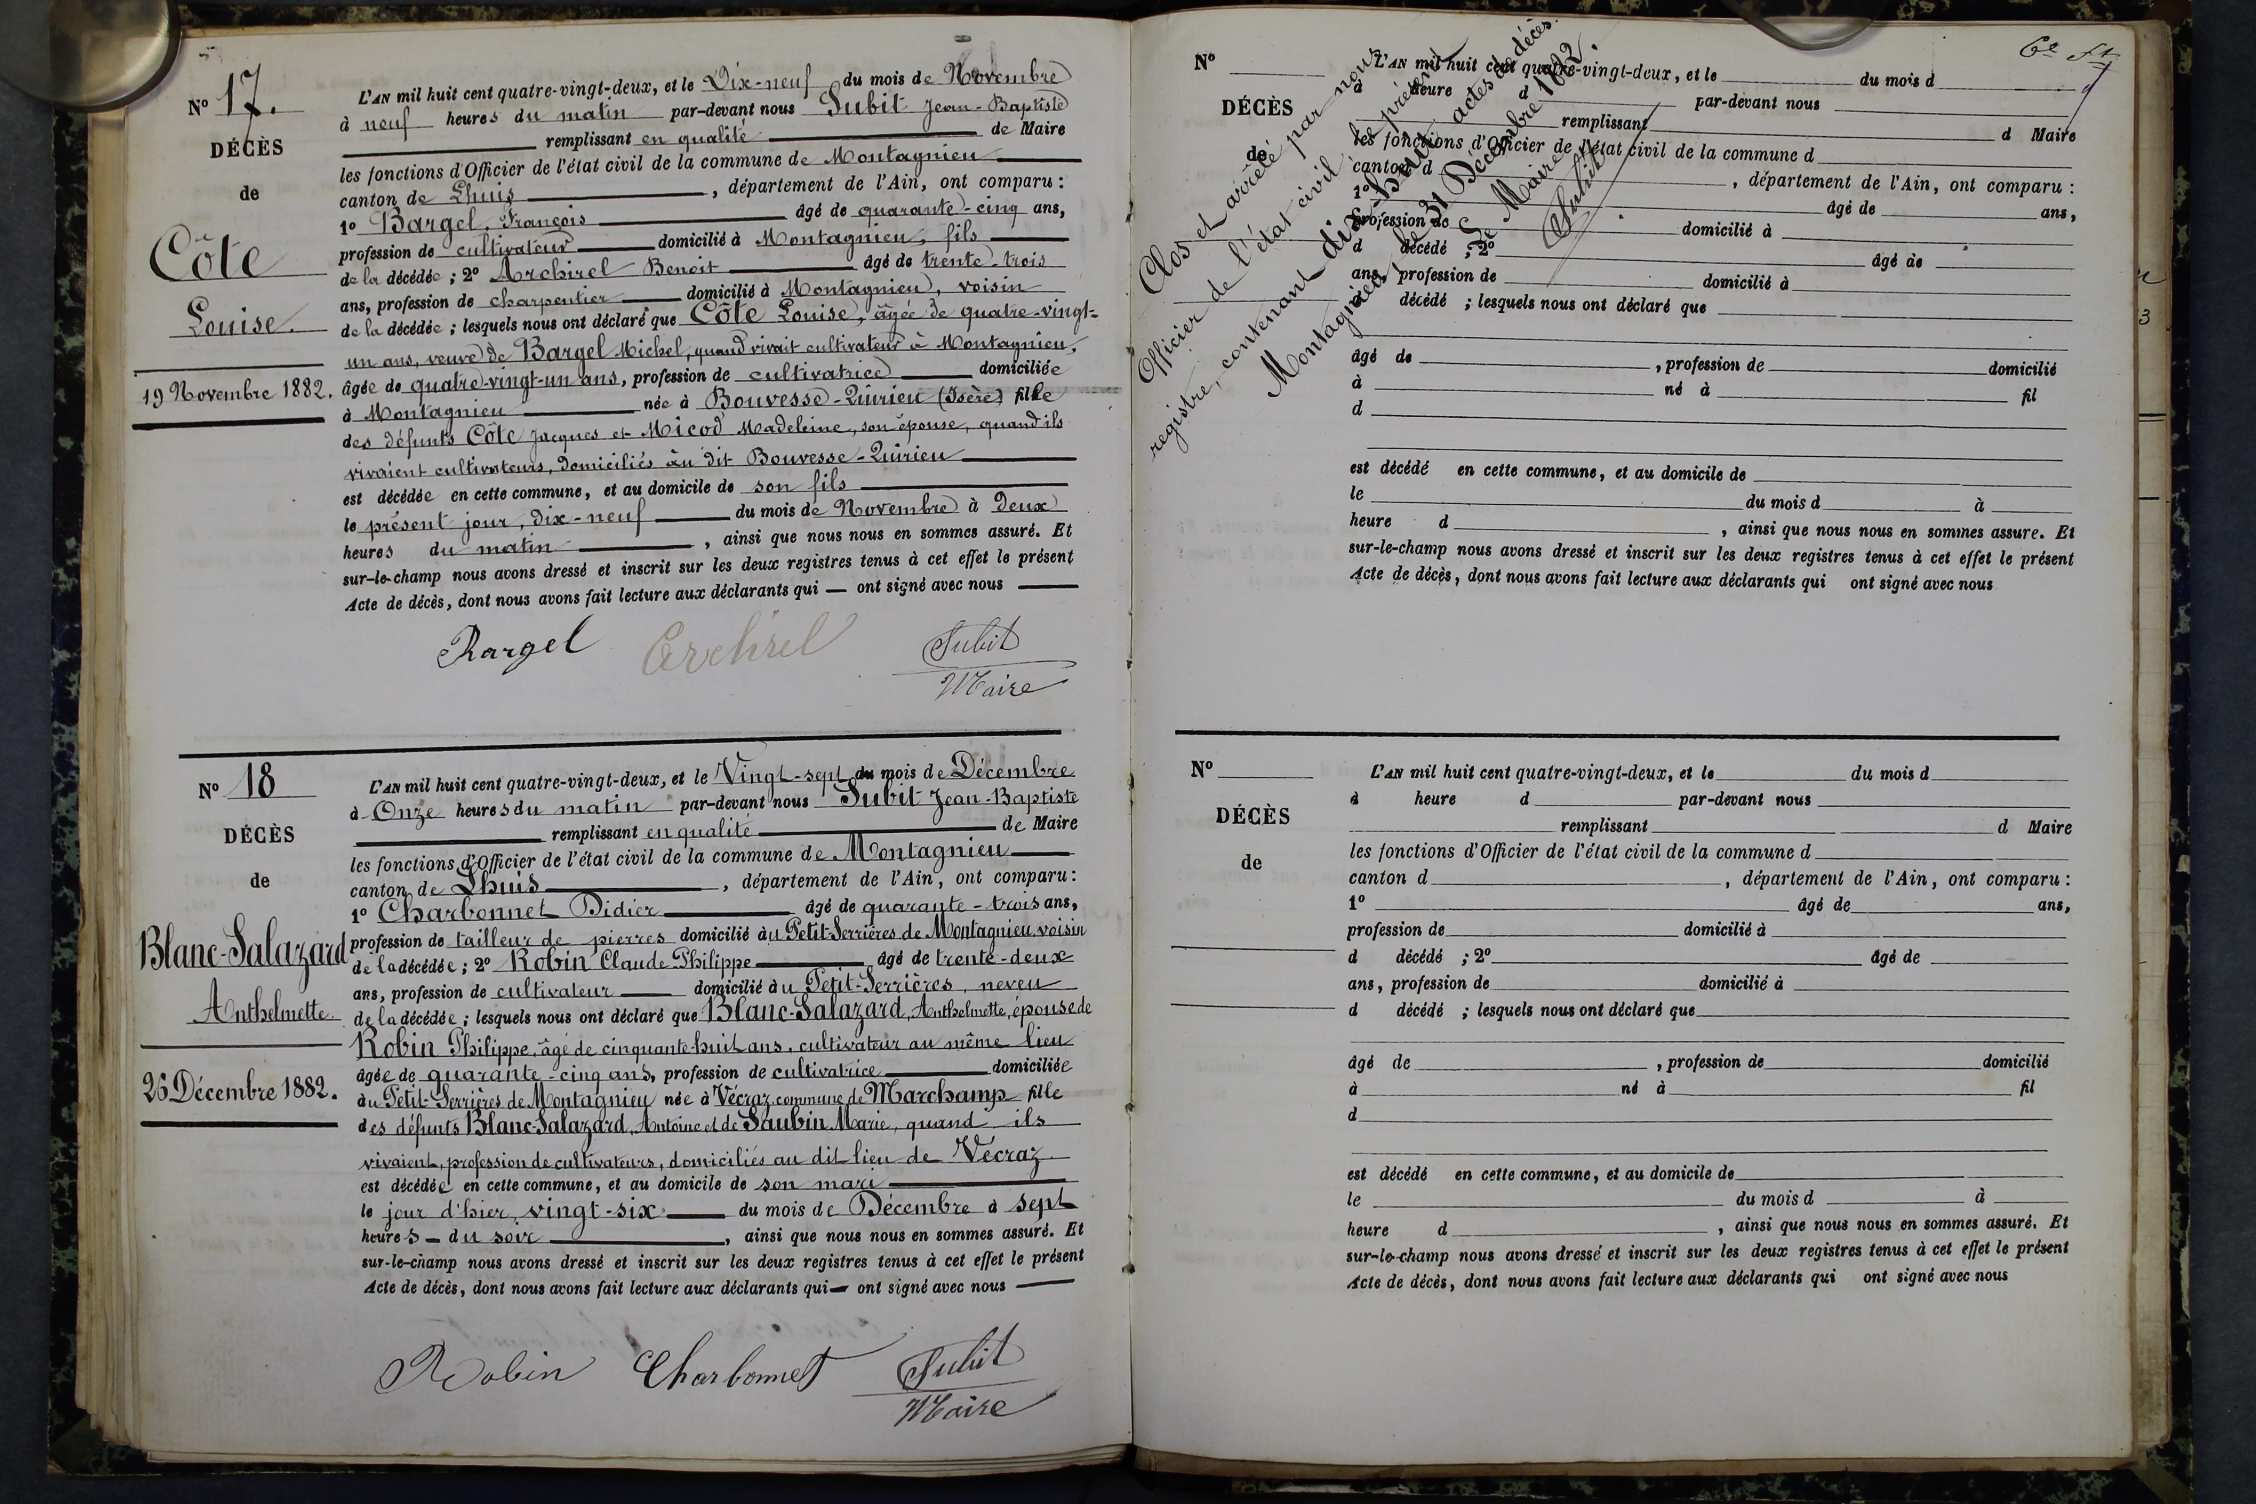 N° 17.
DÉCÈS
de
Côte
Louise.
19 Novembre 1882.
L'AN mil huit cent quatre-vingt-deux, et le Dix-neuf du mois de Novembre
à neuf heures du matin par-devant nous Subit Jean-Baptiste
remplissant en qualité de Maire
les fonctions d'Officier de l'état civil de la commune de Montagnieu
canton de Lhuis, département de l'Ain, ont comparu :
1° Bargel, François âgé de quarante-cinq ans,
profession de cultivateur domicilié à Montagnieu, fils
de la décédée ; 2° Archirel Benoit âgé de trente-trois
ans, profession de charpentier domicilié à Montagnieu, voisin
de la décédée ; lesquels nous ont déclaré que Côte Louise, âgée de quatre-vingt-
un ans, veuve de Bargel Michel, quand vivait cultivateur à Montagnieu,
âgée de quatre-vingt-un ans, profession de cultivatrice domiciliée
à Montagnieu née à Bouvesse-Quirieu (Isère) fille
des défunts Côte Jacques et Micod Madeleine, son épouse, quand ils
vivaient cultivateurs, domiciliés au dit Bouvesse-Quirieu
est décédée en cette commune, et au domicile de son fils
le présent jour, dix-neuf du mois de Novembre à deux
heures du matin, ainsi que nous nous en sommes assuré. Et
sur-le-champ nous avons dressé et inscrit sur les deux registres tenus à cet effet le présent
Acte de décès, dont nous avons fait lecture aux déclarants qui — ont signé avec nous
Bargel Archirel Subit
Maire
N° 18
DÉCÈS
de
Blanc-Salazard
Anthelmette.
26 Décembre 1882.
L'AN mil huit cent quatre-vingt-deux, et le Vingt-sept du mois de Décembre
à Onze heures du matin par-devant nous Subit Jean-Baptiste
remplissant en qualité de Maire
les fonctions d'Officier de l'état civil de la commune de Montagnieu
canton de Lhuis, département de l'Ain, ont comparu :
1° Charbonnet Didier âgé de quarante-trois ans,
profession de tailleur de pierres domicilié au Petit-Serrières de Montagnieu, voisin
de la décédée ; 2° Robin Claude Philippe âgé de trente-deux
ans, profession de cultivateur domicilié au Petit-Serrières, neveu
de la décédée ; lesquels nous ont déclaré que Blanc-Salazard, Anthelmette, épouse de
Robin Philippe, âgé de cinquante-huit ans, cultivateur au même lieu
âgée de quarante-cinq ans, profession de cultivatrice domiciliée
au Petit-Serrières de Montagnieu née à Vécraz, commune de Marchamp fille
des défunts Blanc-Salazard, Antoine et de Saubin Marie, quand ils
vivaient, profession de cultivateurs, domiciliés au dit lieu de Vécraz
est décédée en cette commune, et au domicile de son mari
le jour d'hier, vingt-six du mois de Décembre à sept
heures — du soir, ainsi que nous nous en sommes assuré. Et
sur-le-champ nous avons dressé et inscrit sur les deux registres tenus à cet effet le présent
Acte de décès, dont nous avons fait lecture aux déclarants qui — ont signé avec nous
Robin Charbonnet Subit
Maire
Clos et arrêté par nous
Officier de l'état civil le présent
registre, contenant dix-huit actes de décès.
Montagnieu, le 31 Décembre 1882.
Le Maire
Subit
N°
DÉCÈS
de
L'AN mil huit cent quatre-vingt-deux, et le du mois d
à heure d par-devant nous
remplissant d Maire
les fonctions d'Officier de l'état civil de la commune d
canton d , département de l'Ain, ont comparu :
1° âgé de ans,
profession de domicilié à
d décédé ; 2° âgé de
ans, profession de domicilié à
d décédé ; lesquels nous ont déclaré que
âgé de , profession de domicilié
à né à fil
d
est décédé en cette commune, et au domicile de
le du mois d à
heure d , ainsi que nous nous en sommes assure. Et
sur-le-champ nous avons dressé et inscrit sur les deux registres tenus à cet effet le présent
Acte de décès, dont nous avons fait lecture aux déclarants qui ont signé avec nous
N°
DÉCÈS
de
L'AN mil huit cent quatre-vingt-deux, et le du mois d
à heure d par-devant nous
remplissant d Maire
les fonctions d'Officier de l'état civil de la commune d
canton d , département de l'Ain, ont comparu :
1° âgé de ans,
profession de domicilié à
d décédé ; 2° âgé de
ans, profession de domicilié à
d décédé ; lesquels nous ont déclaré que
âgé de , profession de domicilié
à né à fil
d
est décédé en cette commune, et au domicile de
le du mois d à
heure d , ainsi que nous nous en sommes assuré. Et
sur-le-champ nous avons dressé et inscrit sur les deux registres tenus à cet effet le présent
Acte de décès, dont nous avons fait lecture aux déclarants qui ont signé avec nous